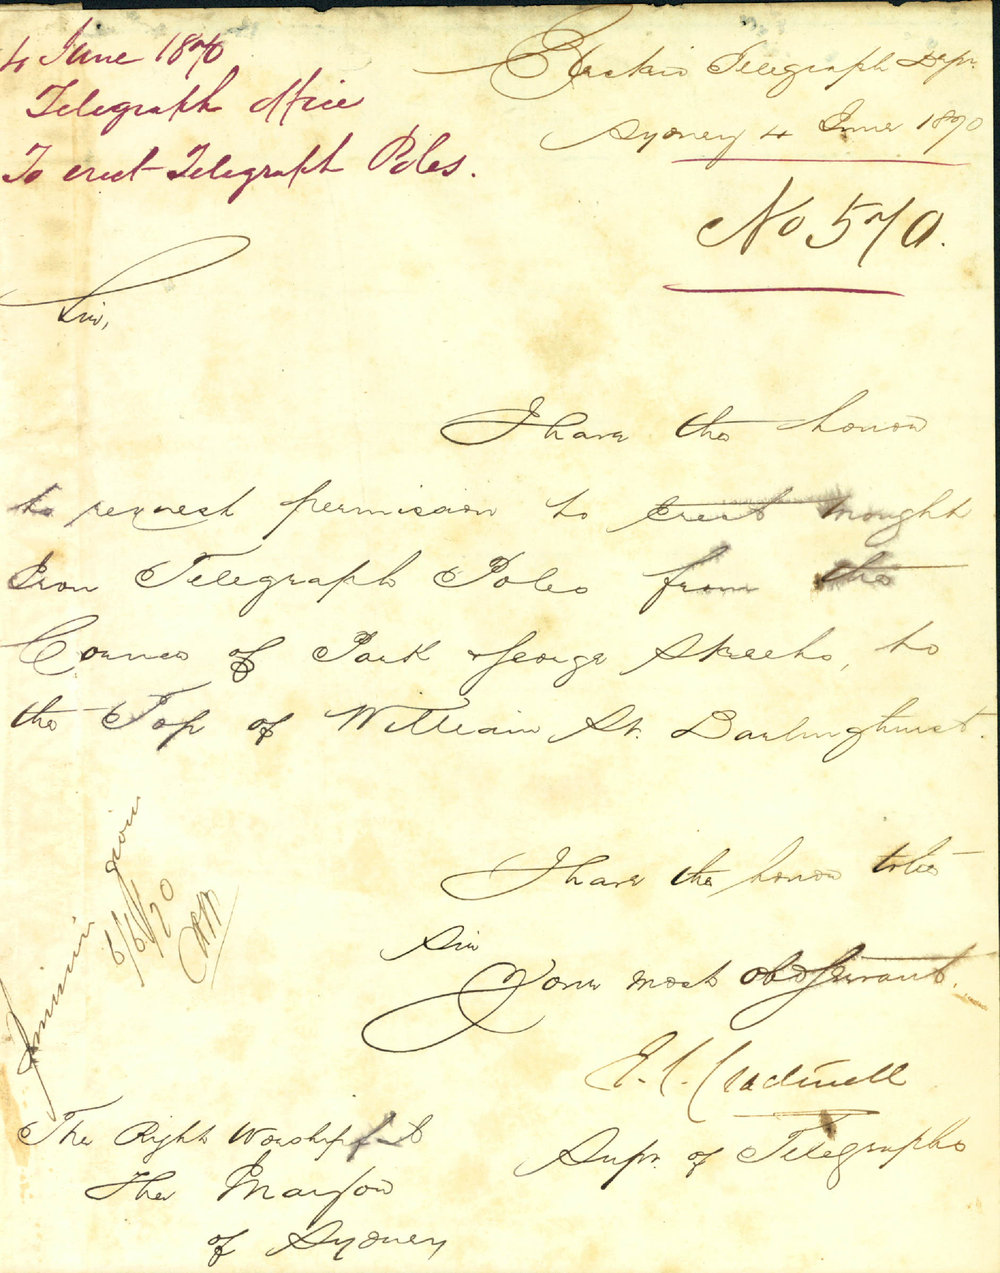 4 June 1870
Telegraph Office
To erect Telegraph Poles.
Electric Telegraph Dept.
Sydney 4 June 1870
No 570.
Sir,
I have the honor
to request permission to erect wrought
Iron Telegraph Poles from the
Corner of Park & George Streets, to
the Top of William St. Darlinghurst.
I have the honor to be
Sir
Your most obdt Servant.
E. C. Cracknell
Supr. of Telegraphs
Permission given
6/6/70
The Right Worshipful
The Mayor
of Sydney